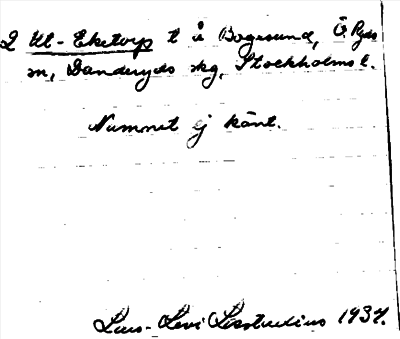 2 Ut-Eketorp t å Bogesund, Ö. Ryds
sn, Danderyds skg, Stockholms l.
Numnet ej känt.
Lars-Levi Læstadius 1937.